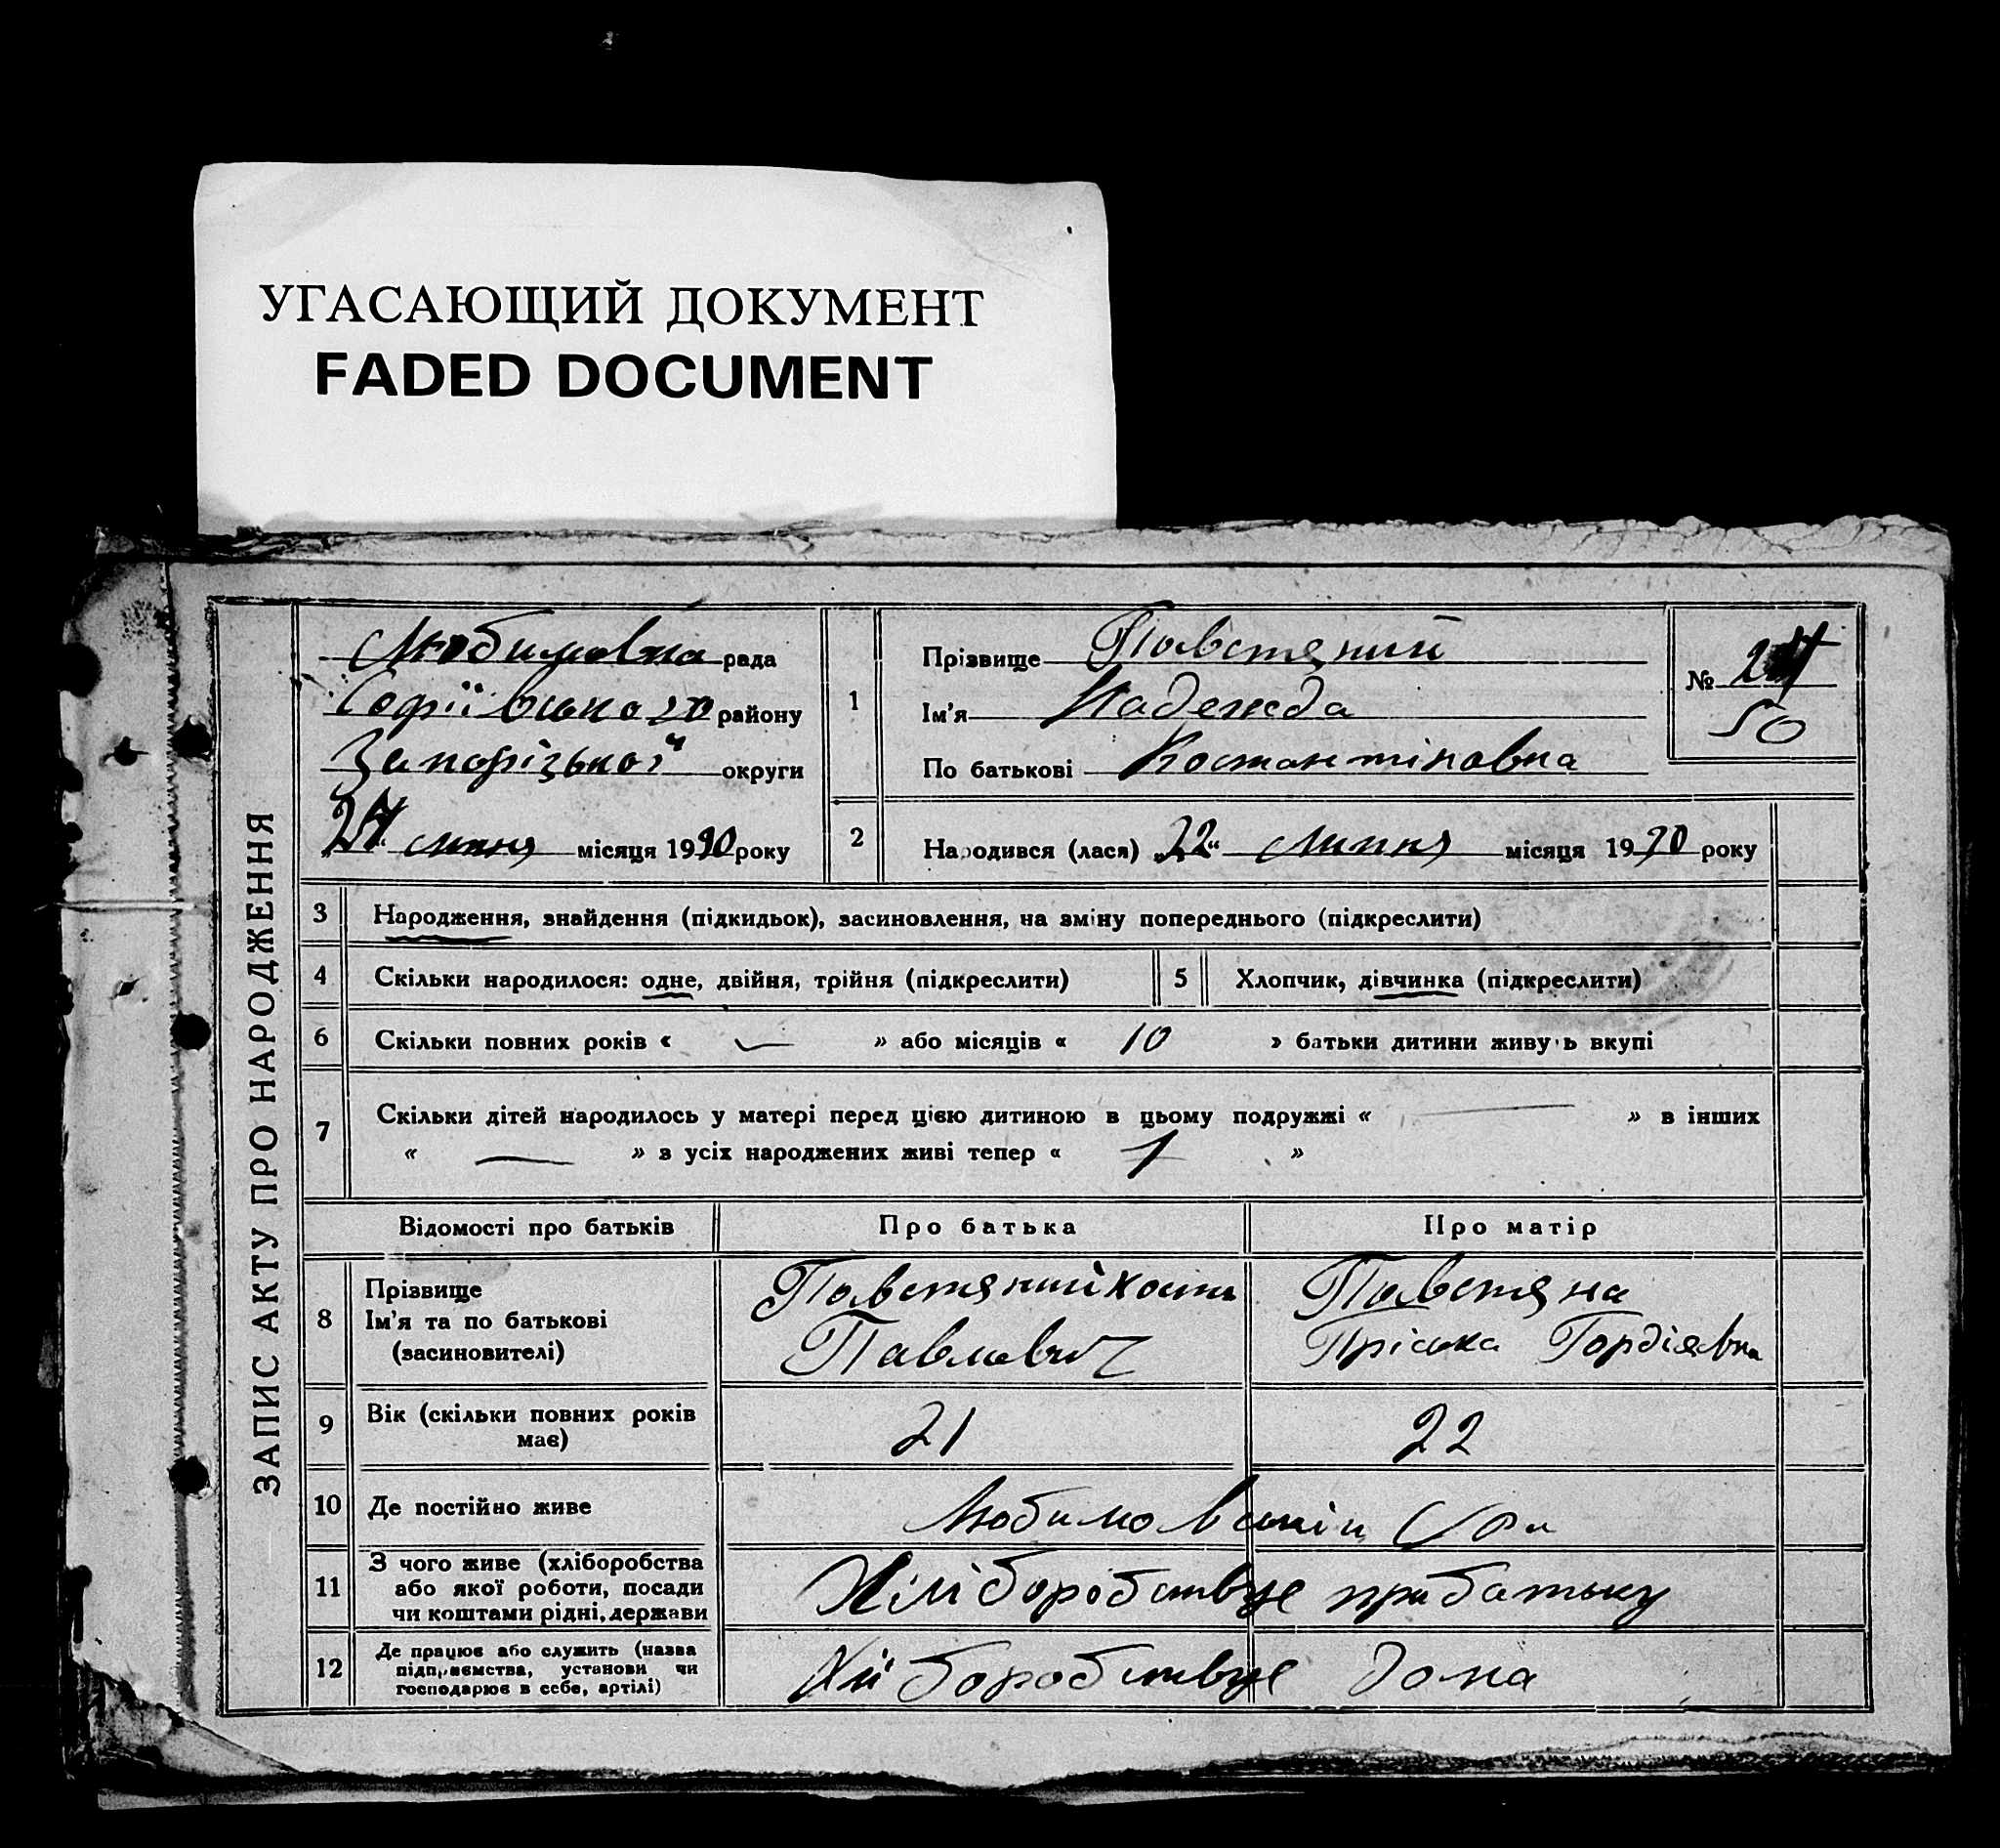 УГАСАЮЩИЙ ДОКУМЕНТ
FADED DOCUMENT
ЗАПИС АКТУ ПРО НАРОДЖЕННЯ
Любимовка рада
Софіївського району
Запорізької округи
липня місяця 1930 року
1 Прізвище Павстяний
Ім'я Надежда
По батькові Костантіновна
№ 24
50
2 Народився (лася) „22“ липня місяця 1930 року
3 Народження, знайдення (підкидьок), засиновлення, на зміну попереднього (підкреслити)
4 Скільки народилося: одне, двійня, трійня (підкреслити) 5 Хлопчик, дівчинка (підкреслити)
6 Скільки повних років « — » або місяців « 10 » батьки дитини живуть вкупі
7 Скільки дітей народилось у матері перед цією дитиною в цьому подружжі « — » в інших
« — » з усіх народжених живі тепер « 1 »
Відомості про батьків Про батька Про матір
8 Прізвище Ім'я та по батькові (засиновителі)
Павстяний Кость Павлович
Павстяна Пріська Гордіявна
9 Вік (скільки повних років має) 21 22
10 Де постійно живе Любимовській
11 З чого живе (хліборобства або якої роботи, посади чи коштами рідні, держави
Хліборобствує при батьку
12 Де працює або служить (назва підприємства, установи чи господарює в себе, артілі)
Хліборобствує дома